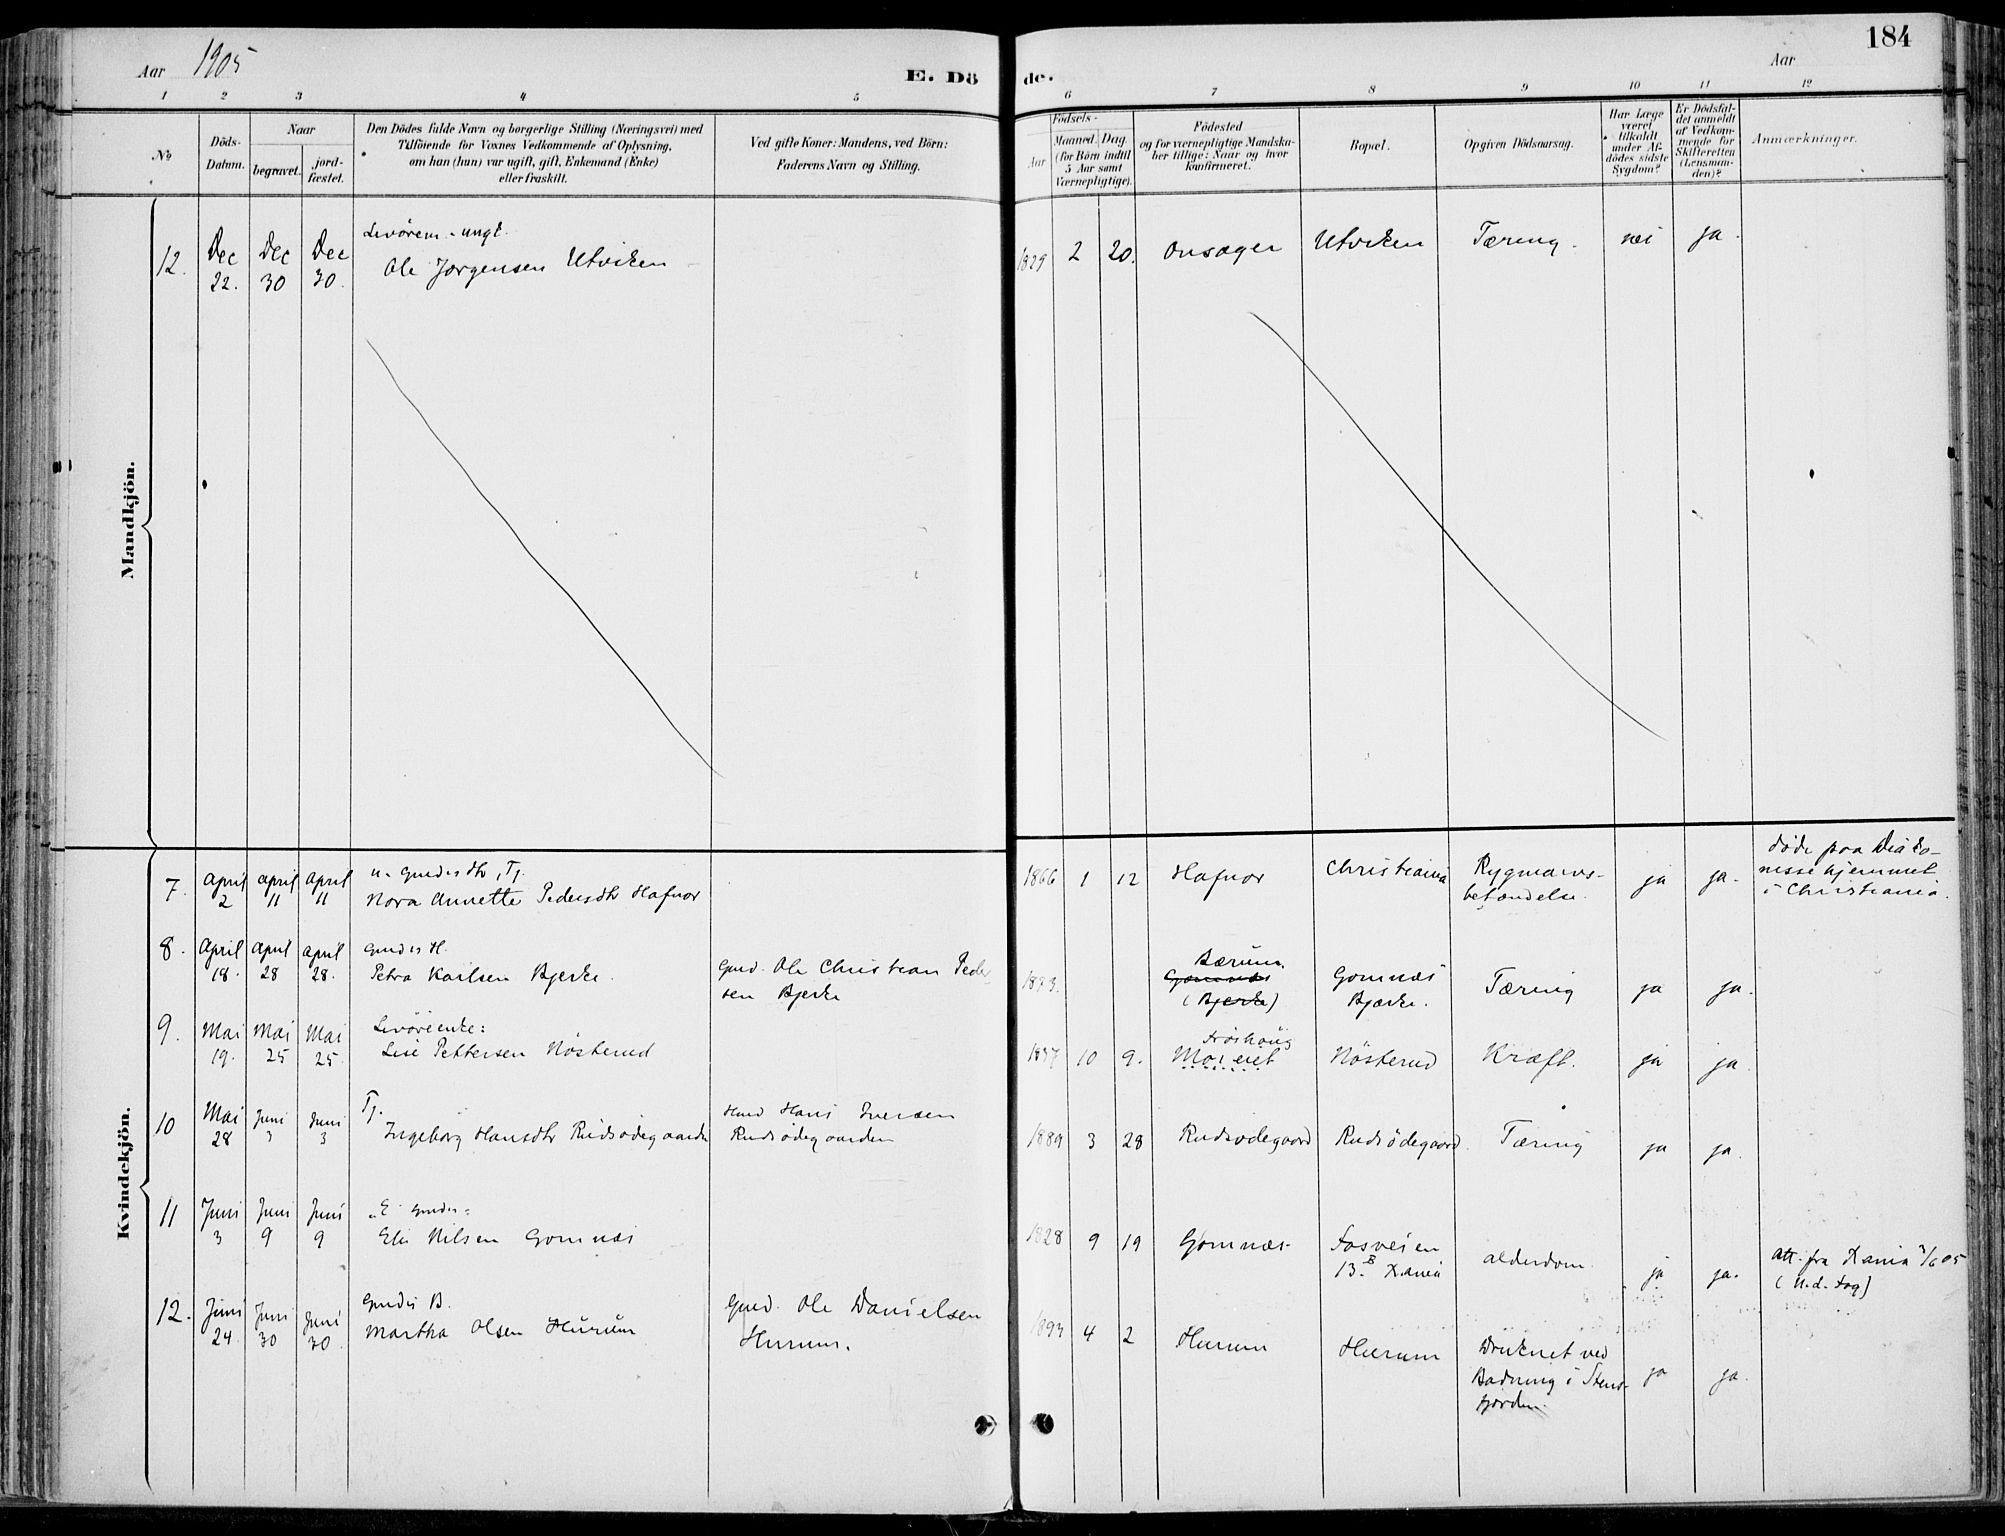 184
Aar 1905
E. Dö de.
Aar
1 2 3 4 5 6 7 8 9 10 11 12
No
Döds-
Datum.
Naar
begravet.
jord-
fæstet.
Den Dödes fulde Navn og borgerlige Stilling (Næringsvei) med
Tilföiende for Voxnes Vedkommende af Oplysning,
om han (hun) var ugift, gift, Enkemand (Enke)
eller fraskilt.
Ved gifte Koner: Mandens, ved Börn:
Faderens Navn og Stilling.
Födsels-
Aar
Maaned. Dag.
(for Börn indtil
5 Aar samt
Værnepligtige).
Födested
og for værnepligtige Mandska-
ber tillige: Naar og hvor
konfirmeret.
Bopæl.
Opgiven Dödsaarsag.
Har Læge
været
tilkaldt
under Af-
dödes sidste
Sygdom?
Er Dödsfal-
det anmeldt
af Vedkom-
mende for
Skifteretten
(Lensman-
den)?
Anmærkninger.
Mandkjön.
12. Dec 22. Dec 30 Dec 30.
ungk.
Ole Jørgensen Utviken
1829 2 20. Onsager Utviken Tæring. nei ja.
Kvindekjön.
7. April 2 April 11 April 11
Nora Annette Pedersdtr Hafnor
1866 1 12 Hafnor Christiania
Rygmarvs-
betændelse.
ja ja.
døde paa Diako-
nissehjemmet
i Christiania.
8. April 18. April 28 April 28.
Petra Karlsen Bjerke.
Gmd. Ole Christian Peder-
sen Bjerke
1873.
Bærum.
Gomnæs
(Bjerke)
Gomnæs
Bjærke.
Tæring ja ja.
9. Mai 19. Mai 25 Mai 25.
Lise Pettersen Nösterud
1837 10 9.
Frøihaug
Moieiet
Nösterud Kræft. ja ja.
10 Mai 28 Juni 3 Juni 3
Tj.
Ingeborg Hansdtr Rudsødegaarden
Hans Iversen
Rudsødegaarden
1889 3 28 Rudsødegaard Rudsødegaard. Tæring ja ja.
11 Juni 3 Juni 9 Juni 9
Eli Nilsen Gomnæs
1828 9 19 Gomnæs
Fosveien
13. B Xania
alderdom. ja ja.
Att. fra Xania 3/6 05
12. Juni 24. Juni 30 Juni 30
Martha Olsen Hurum
Gmd. Ole Danielsen
Hurum.
1893 4 2 Hurum Hurum
Druknet ved
Badning i Stens-
fjorden.
ja ja.